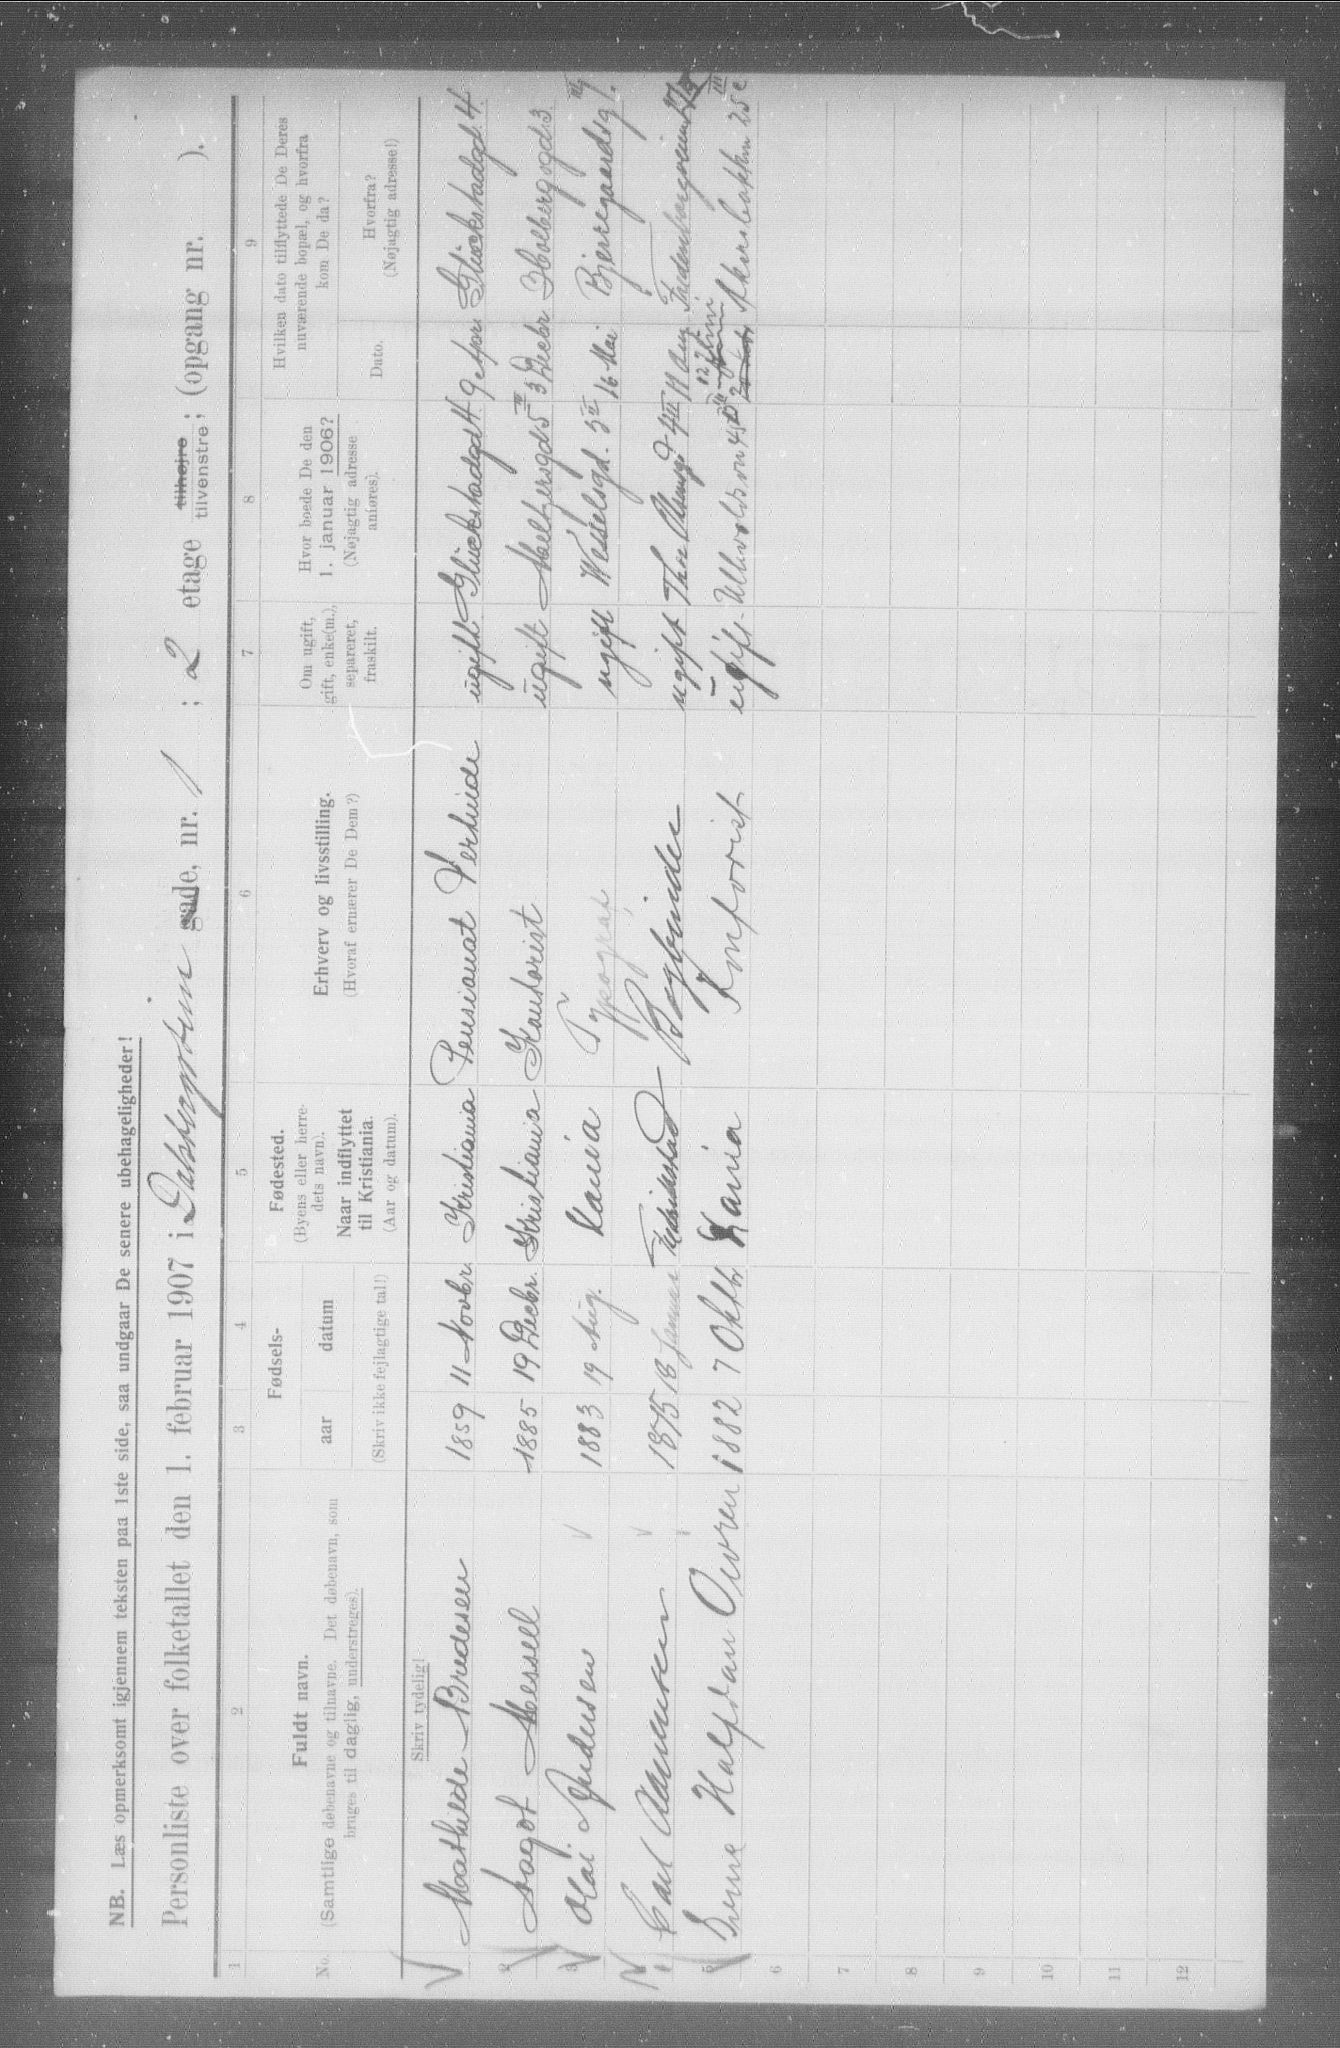 NB. Læs opmerksomt igjennem teksten paa 1ste side, saa undgaar De senere ubehageligheder!
Personliste over folketallet den 1. februar 1907 i Dalsbergstien gade, nr. 1 ; 2 etage tilhøjre tilvenstre; (opgang nr. ).
1 2 3 4 5 6 7 8 9
No.
Fuldt navn.
(Samtlige døbenavne og tilnavne. Det døbenavn, som
bruges til daglig, understreges).
Fødsels-
aar datum
(Skriv ikke fejlagtige tal!)
Fødested.
(Byens eller herre-
dets navn).
Naar indflyttet
til Kristiania.
(Aar og datum).
Erhverv og livsstilling.
(Hvoraf ernærer De Dem?)
Om ugift,
gift, enke(m.),
separeret,
fraskilt.
Hvor boede De den
1. januar 1906?
(Nøjagtig adresse
anføres).
Hvilken dato tilflyttede De Deres
nuværende bopæl, og hvorfra
kom De da?
Dato.
Hvorfra?
(Nøjagtig adresse!)
Skriv tydelig!
Mathilde Bredesen 1859 11 Novbr. Kristiania Pensionat Vertinde ugift Glückstadgd 4. 9 Apr. Glückstadgd. 4.
2 Aagot Messell 1885 19 Decbr. Kristiania Kontorist ugift Meltzersgd 5 III 3 Decbr Holbergsgd. 3
3 Olai Andersen 1883 19 Aug. Kania Typograf ugift Wesselsgd. 3 II 16 Mai Bjerregaardsg 7.
Carl Aamunsen 1875 18 Januar Frederikstad Bogbinder ugift 4 III 19 Aug
5 Halfdan 1882 7 Oktb Kania Kontorist ugift Akersbakken 25c III
6
7
8
9
10
11
12